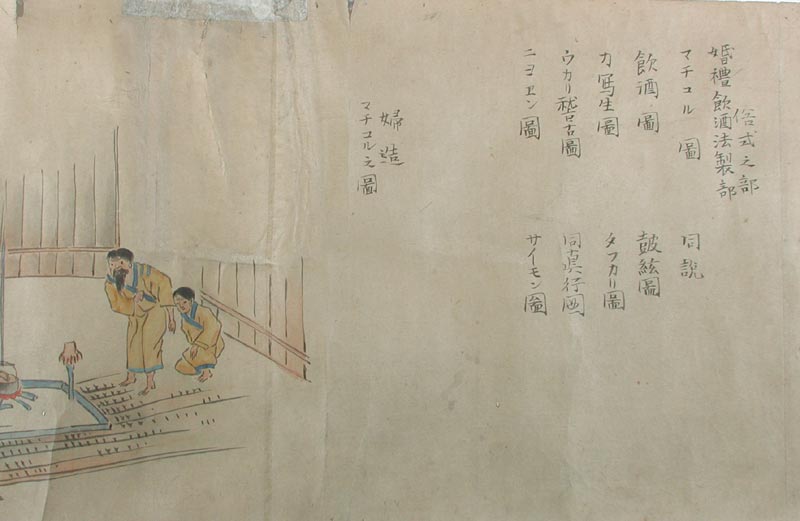 俗式之部
婚禮飲酒法製部
マチコル圖 同説
飲酒圖 皷絃圖
カ寫生圖 タフカリ圖
ウカリ稽古圖 同真行圖
ニヨエン圖 サイモン圖
婦造
マチコル之圖